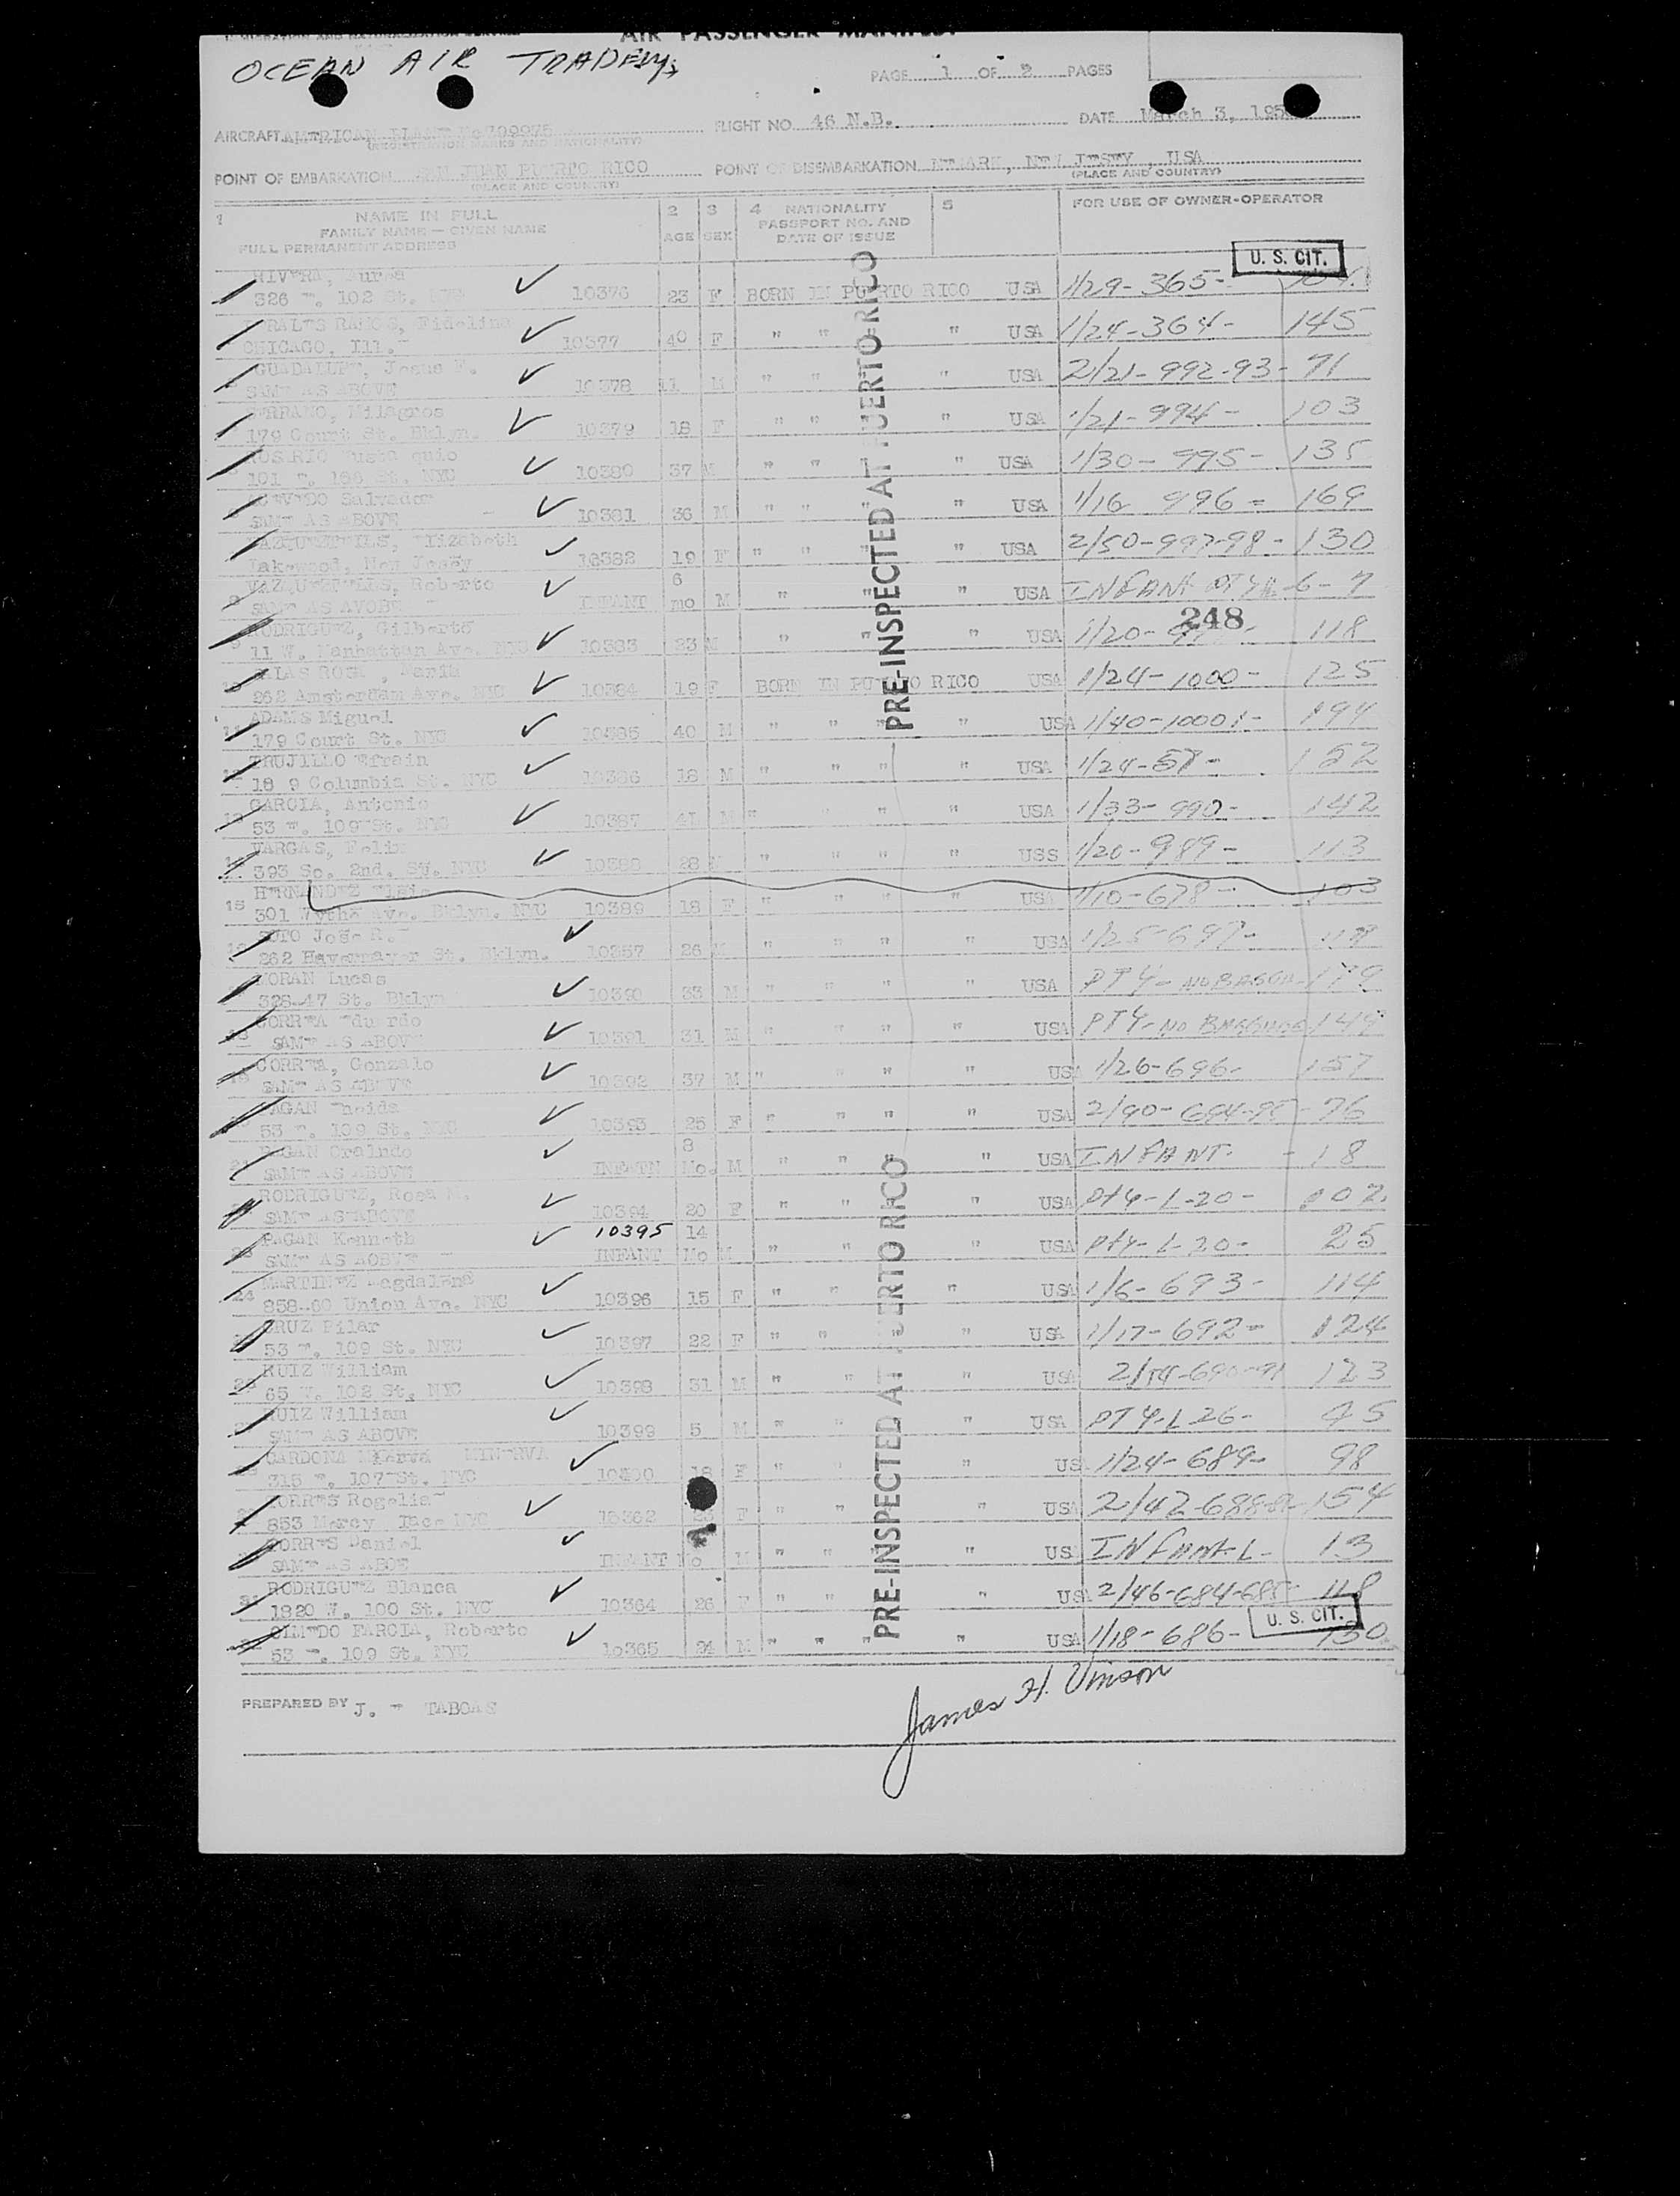 IMMIGRATION AND NATURALIZATION SERVICE
AIR PASSENGER MANIFEST
OCEAN AIR TRADEWYS
PAGE 1 OF 2 PAGES
AIRCRAFT AMERICAN PLANE No
FLIGHT NO. 46 N.B.
DATE March 3, 195
(REGISTRATION MARKS AND NATIONALITY)
POINT OF EMBARKATION SAN JUAN PUERTO RICO
POINT OF DISEMBARKATION NEWARK, NEW JESEY, USA
(PLACE AND COUNTRY)
(PLACE AND COUNTRY)
1 NAME IN FULL
FAMILY NAME — GIVEN NAME
FULL PERMANENT ADDRESS
2 AGE
3 SEX
4 NATIONALITY
PASSPORT NO. AND
DATE OF ISSUE
5
FOR USE OF OWNER-OPERATOR
U. S. CIT.
RIVERA,
326 E. 102 St. NYC 10376 23 F BORN IN PUERTO RICO USA 1/29-365-
RAMOS, Fidelina
CHICAGO, Ill. 10377 40 F " " " USA 1/24-364- 145
GUADALUPE, Jesus
SAME AS ABOVE 10378 11 M " " " USA 2/21-992-93- 71
SERRANO, Milagros
179 Court St. Bklyn. 10379 18 F " " " USA 1/21-994- 103
ROSARIO
101 E. NYC 10380 37 M " " " USA 1/30-995- 135
Salvador
SAME AS ABOVE 10381 36 M " " " USA 1/16 996- 169
Elizabeth
Lakewood, New Jesey 10382 19 F " " " USA 2/50-997-98- 130
Roberto
SAME AS AVOBE INFANT 6 mo M " " " USA INFANT 7
248
RODRIGUEZ, Gilberto
11 W. Manhattan Ave. NYC 10383 23 M " " " USA 1/20- 118
262 Amsterdam Ave. NYC 10384 19 F BORN IN PUERTO RICO USA 1/24-1000- 125
ADAMS Miguel
179 Court St. NYC 10385 40 M " " " " USA 1/40-10001- 194
TRUJILLO Efrain
18 9 Columbia St. NYC 10386 18 M " " " " USA 1/24- 152
GARCIA, Antonio
53 E. 109 St. NYC 10387 41 M " " " USA 1/33-990- 142
VARGAS, Felix
393 So. 2nd. St. NYC 10388 28 M " " " " USS 1/20-989- 113
HERNANDEZ Elsie
15 301 Wythe Ave. Bklyn. NYC 10389 18 F " " " " USA 1/10-678- 103
SOTO Jose R.
262 Havemayer St. Bklyn. 10357 26 M " " " " USA 1/25-697-
MORAN Lucas
328-47 St. Bklyn 10390 33 M " " " " USA PTY- 179
CORREA Eduardo
SAME AS ABOV 10391 31 M " " " " USA PTY-NO BAGGAGE-149
CORREA, Gonzalo
SAME AS ABOVE 10392 37 M " " " " USA 1/26-696- 157
PAGAN
53 E. 109 St. NYC 10393 25 F " " " " USA 2/90-694-95- 76
PAGAN
SAME AS ABOVE INFATN 8 Mo. M " " " " USA INFANT- 18
RODRIGUEZ, Rosa M.
SAME AS ABOVE 10394 20 F " " " USA Pty-L-20- 102
10395
PAGAN Kenneth
SAME AS INFANT 14 Mo M " " " USA Pty-L-20- 25
MARTINEZ Magdalena
24 858-60 Union Ave. NYC 10396 15 F " " " USA 1/6-693- 114
CRUZ Pilar
53 E. 109 St. NYC 10397 22 F " " " " USA 1/17-692- 124
RUIZ William
65 W. 102 St. NYC 10398 31 M " " " USA 123
RUIZ William
SAME AS ABOVE 10399 5 M " " " USA PTY-L-26- 45
CARDONA MINERVA
315 E. 107 St. NYC F " " " USA 1/24-689- 98
TORRES Rogelia
853 NYC 10362 F " " " USA 2/42- 154
TORRES Daniel
SAME AS ABOE INFANT Mo M " " " US INFANT-L- 13
RODRIGUEZ Blanca
31 1820 W. 100 St. NYC 10364 26 F " " " USA 2/46-684-685- 118
U. S. CIT.
OLMEDO FARCIA, Roberto
53 E. 109 St. NYC 10365 24 M " " " " USA 1/18-686- 130
PRE-INSPECTED AT PUERTO RICO
PRE-INSPECTED AT PUERTO RICO
PREPARED BY J. E TABOAS
James H. Vinson